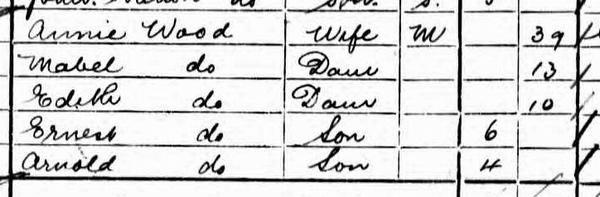 Annie Wood Wife M 39
Mabel do Daur 13
Edith do Daur 10
Ernest do Son 6
Arnold do Son 4